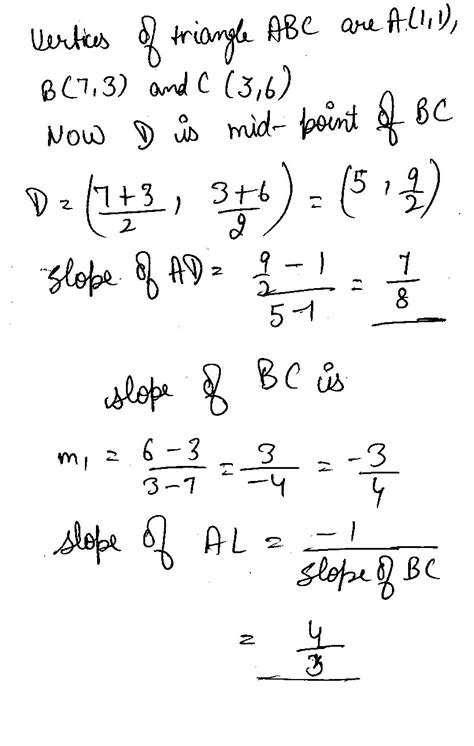 Vertices of triangle ABC are A(1,1),
B(7,3) and C (3,6)
NOW D is mid-point of BC
D = (7+3/2, 3+6/2) = (5, 9/2)
slope of AD = (9/2 - 1)/(5-1) = 7/8
slope of BC is
m₁ = (6-3)/(3-7) = 3/-4 = -3/4
slope of AL = -1/slope of BC
= 4/3